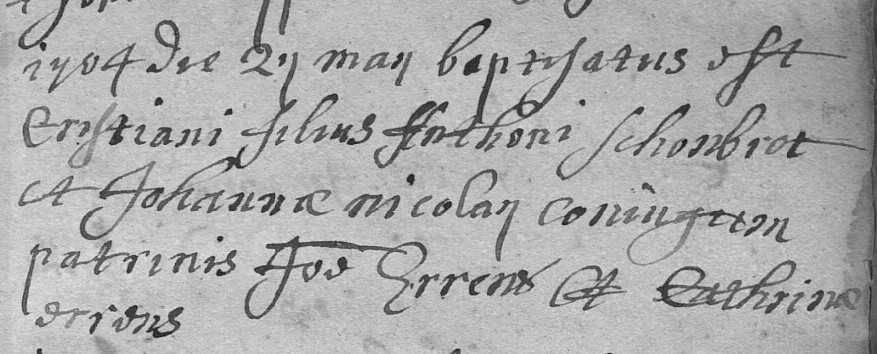 1704 die 27 maÿ baptisatus est
Cristiani filius Anthoni Schonbrot
et Johannæ nicolaÿ coniugum
patrinis Joe Errens et Cathrinæ
errens